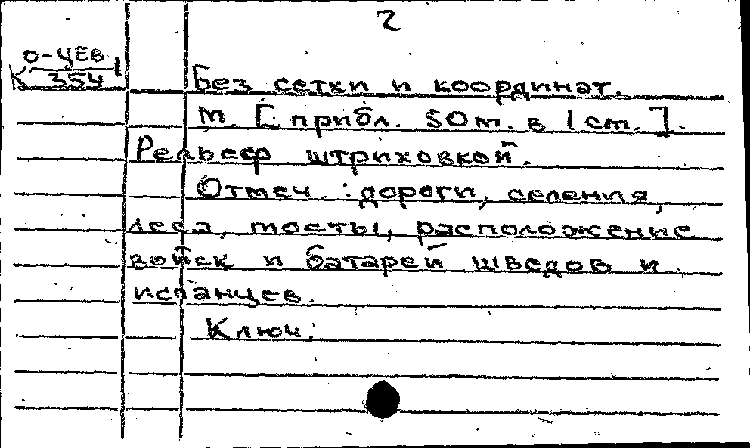 2
О-ЦЕВ
К 354 1
Без сетки и координат.
М. [прибл. 50 м. в 1 cm.].
Рельеф штриховкой.
Отмеч.: дороги, селения,
леса, мосты, расположение
войск и батарей шведов и
испанцев.
Ключ.